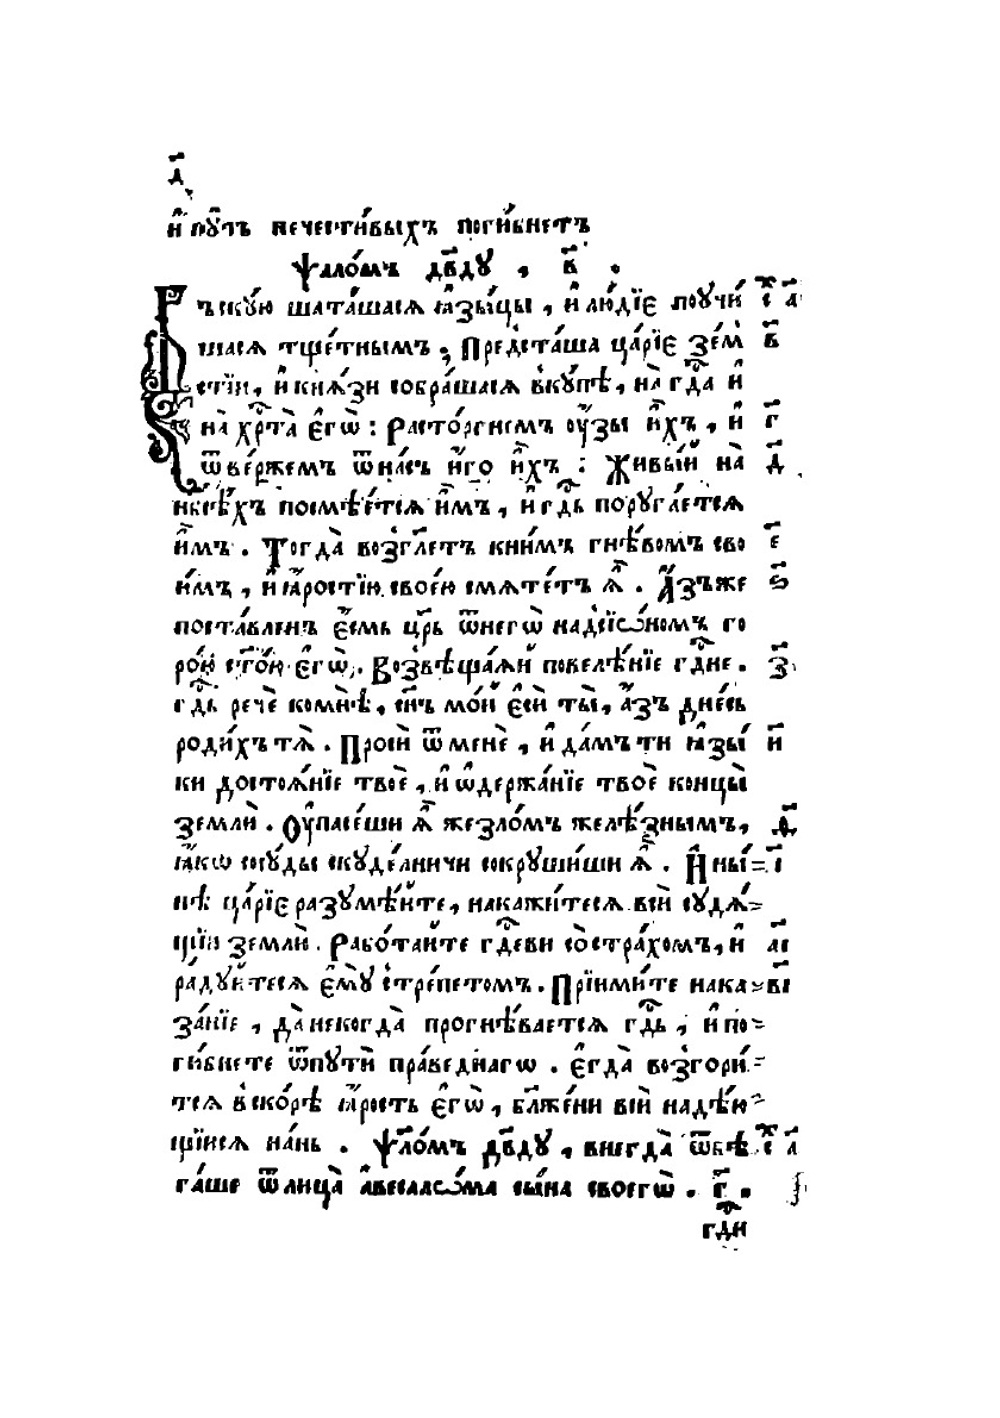 д҃
и҆ пꙋ́ть нечести́выхъ поги́бнетъ
ѱало́мъ дв҃дꙋ , в҃ .
Въскꙋ́ю шата́шасѧ ꙗ҆зы́цы , и҆ лю́дїє поꙋчи́ с̑ а҃
шасѧ тще́тнымъ , Предста́ша ца́рїє зе́м̾ в҃
стїи, и҆ кнѧ́зи собра́шасѧ вкꙋ́пѣ, на̀ гд҇а и҆
на̀ хр҇та̀ є҆гѡ̀ : Расто́ргнемъ ᲂу҆́зы и҆́хъ , и҆ г҃
ѿве́ржемъ ѿна́съ и҆́го и҆́хъ : Живы́й на̀ д҃
нбсѣ́хъ посмѣе́тсѧ и҆́мъ , и҆ гд҇ь порꙋга́етсѧ
и҆́мъ . Тогда̀ возгл҃етъ кни́мъ гнѣ́вомъ сво е҃
и́мъ , и҆ ꙗ҆́ростїю свое́ю смѧте́тъ ѧ҆̀ . А҆́зъже ѕ҃
поста́вленъ є҆́смь цр҃ь ѿнегѡ̀ надсїѡ́номъ го
ро́ю ст҃о́ю є҆гѡ̀ . Возвѣща́ѧй повелѣ́нїе гд҇не . з҃
гд҇ь речѐ комнѣ̀ , сн҃ъ мо́й є҆сѝ ты̀ , а҆́зъ дне́сь
роди́хъ тѧ̀ . Просѝ ѿ менѐ , и҆ да́мъ ти ꙗ҆зы́ и҃
ки достоѧ́нїе твоѐ , и҆ ѡ҆держа́нїе твоѐ концы̀
землѝ . Оу҆пасе́ши ѧ҆̀ жезло́мъ желѣ́знымъ , ѳ҃
ꙗ҆́кѡ сосꙋ́ды скꙋде́лничи сокрꙋши́ши ѧ҆̀ . И҆ ны́= і҃
нѣ ца́рїє разꙋмѣ́йте , накажи́тесѧ всѝ сꙋдѧ́=
щїи землѝ . Рабо́тайте гд҇еви со̀стра́хомъ , и҆ а҃і
ра́дꙋйтесѧ є҆мꙋ̀ стре́петомъ . Прїими́те нака= в҃і
за́нїе , да̀ некогда̀ прогнѣ́вается гд҇ь , и҆ по=
ги́бнете ѿпꙋтѝ пра́веднагѡ . Є҆гда̀ возгори́=
тсѧ вско́рѣ ꙗ҆́рость є҆гѡ̀ , бл҃же́ни всѝ надѣ́ю=
щїисѧ на́нь . Ѱ҃ло́мъ дв҃дꙋ , внегда̀ ѿбѣ= с̑ а҃
га́ше ѿлица̀ а҆весалѡ́ма сы́на своегѡ̀ . г҃ .
гд҇и